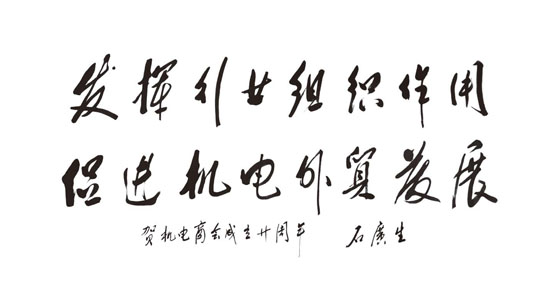 发揮行业组织作用
促进机电外贸發展
贺机电商会成立廿周年 石廣生